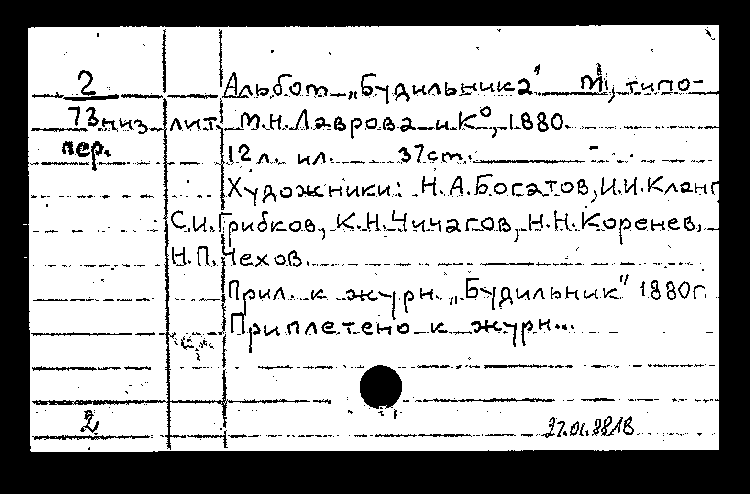 2
73 низ
пер.
Альбом „Будильника" М, типо-
лит. М.Н. Лаврова и К°, 1880.
12 л. ил. 37 cm.
Художники: Н.А. Богатов, И.И. Кланг
С.И. Грибков, К.Н. Чичагов, Н.Н. Коренев,
Н.П. Чехов.
Прил. к журн. „Будильник" 1880г
Приплетено к журн...
2